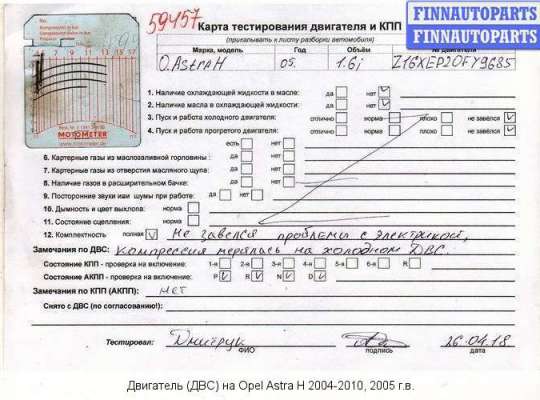 59457
Карта тестирования двигателя и КПП
(прикалывать к листу разборки автомобиля)
FINNAUTOPARTS
FINNAUTOPARTS
FINNAUTOPARTS
Марка, модель Год Объём № двигателя
O.Astra H 05. 1.6i Z16XEP20FY9685
MOTOMETER
1. Наличие охлаждающей жидкости в масле: да нет
2. Наличие масла в охлаждающей жидкости: да нет
3. Пуск и работа холодного двигателя: отлично норма плохо не завёлся
4. Пуск и работа прогретого двигателя: отлично норма плохо не завёлся
есть нет
6. Картерные газы из маслозаливной горловины : да нет
7. Картерные газы из отверстия масляного щупа: да нет
8. Наличие газов в расширительном бачке: да нет
9. Посторонние звуки или шумы при работе: да нет
10. Дымность и цвет выхлопа: норма
11. Состояние сцепления: норма
12. Комплектность полная Не завелся проблемы с электрикой,
Замечания по ДВС: компрессия мерялась на холодном ДВС.
Состояние КПП - проверка на включение: 1-я 2-я 3-я 4-я 5-я 6-я R
Состояние АКПП - проверка на включение: P R N D
Замечания по КПП (АКПП): нет
Снято с ДВС (по согласованию!):
Тестировал: Дмитрук 26.04.18
ФИО подпись дата
Двигатель (ДВС) на Opel Astra H 2004-2010, 2005 г.в.